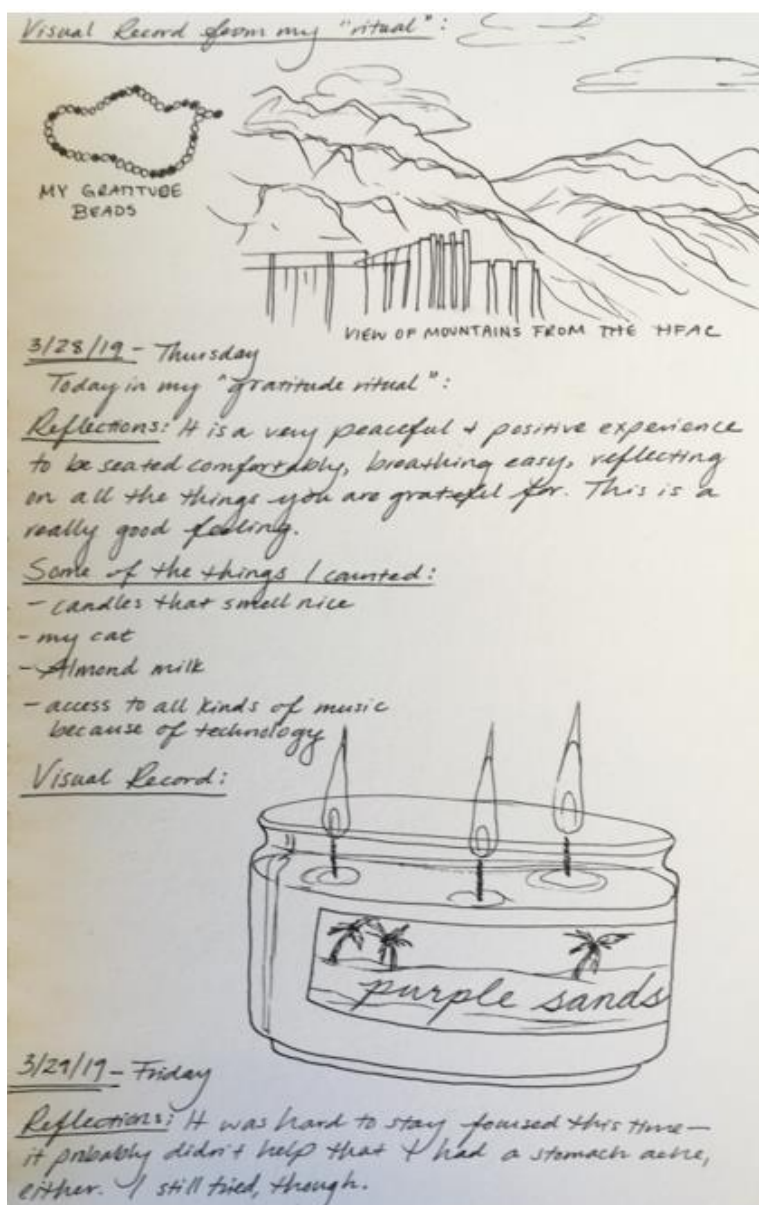 Visual Record from my "ritual":
MY GRATITUDE
BEADS
VIEW OF MOUNTAINS FROM THE HFAC
3/28/19 - Thursday
Today in my "gratitude ritual":
Reflections: It is a very peaceful + positive experience
to be seated comfortably, breathing easy, reflecting
on all the things you are grateful for. This is a
really good feeling.
Some of the things I counted:
- candles that smell nice
- my cat
- Almond milk
- access to all kinds of music
because of technology
Visual Record:
purple sands
3/29/19 - Friday
Reflections: It was hard to stay focused this time—
it probably didn't help that I had a stomach ache,
either. I still tried, though.